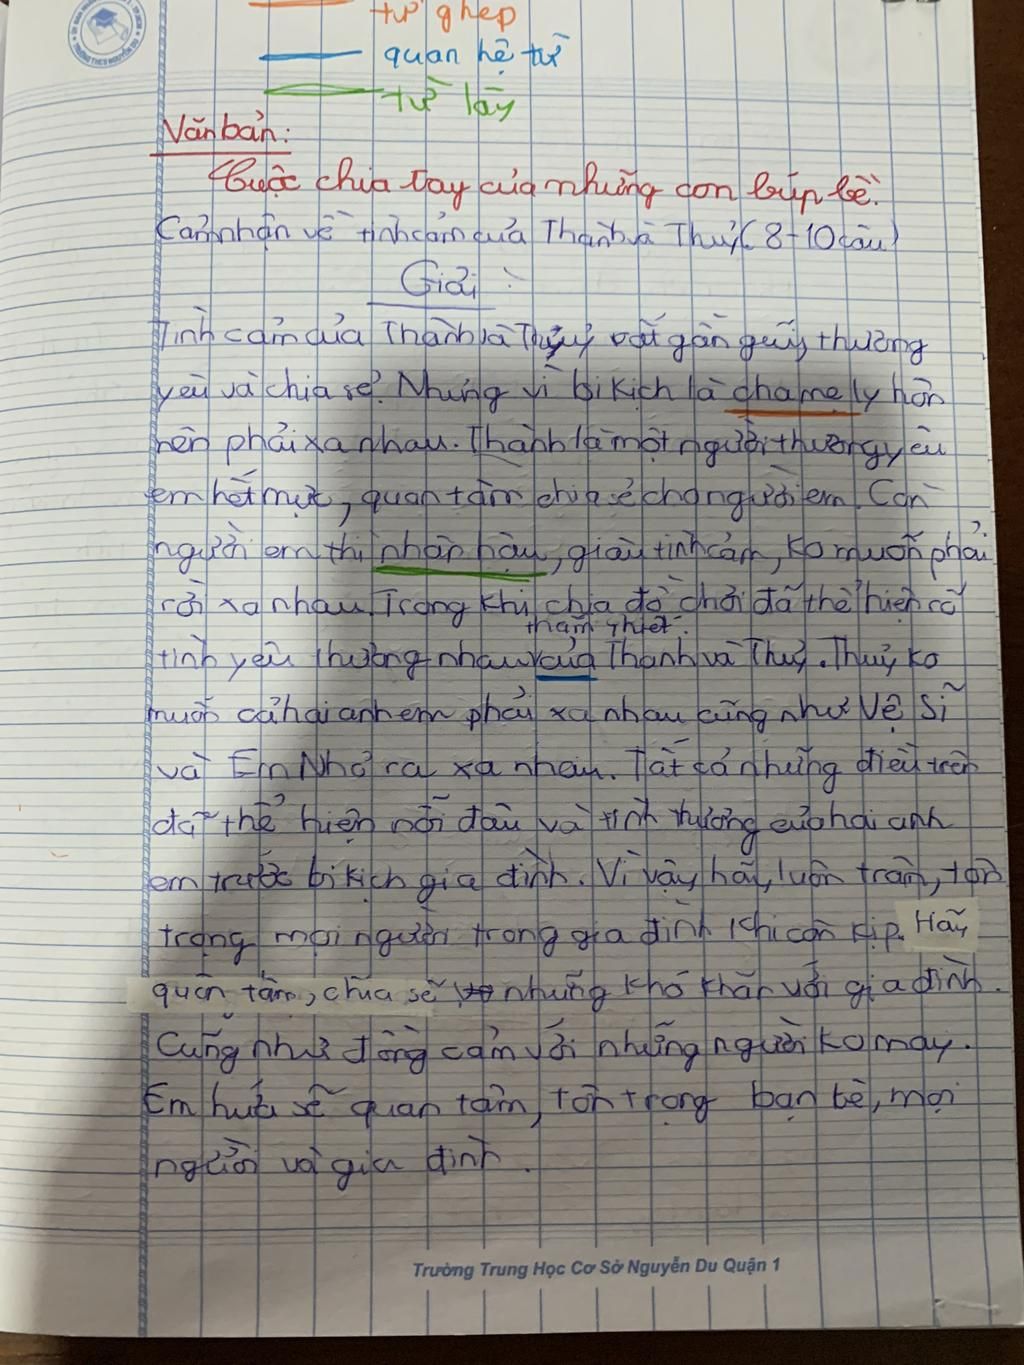 từ ghép
quan hệ từ
từ láy
Văn bản:
Cuộc chia tay của những con búp bê.
Cảm nhận về tình cảm của Thành và Thủy (8-10 câu)
Giải:
Tình cảm của Thành và Thủy rất gần gũi, thương
yêu và chia sẻ. Nhưng vì bi kịch là cha mẹ ly hôn
nên phải xa nhau. Thành là một người thương yêu
em hết mực, quan tâm chia sẻ cho người em. Còn
người em thì nhân hậu, giàu tình cảm, ko muốn phải
rời xa nhau. Trong khi chia đồ chơi đã thể hiện rõ
thắm thiết
tình yêu thương nhau của Thành và Thủy. Thủy ko
muốn cả hai anh em phải xa nhau cũng như Vệ Sĩ
và Em Nhỏ ra xa nhau. Tất cả những điều trên
đã thể hiện nỗi đau và tình thương của hai anh
em trước bi kịch gia đình. Vì vậy hãy luôn trân, tôn
trọng mọi người trong gia đình khi còn kịp. Hãy
quan tâm, chia sẽ những khó khăn với gia đình.
Cũng như đồng cảm với những người ko may.
Em hứa sẽ quan tâm, tôn trọng bạn bè, mọi
người và gia đình.
Trường Trung Học Cơ Sở Nguyễn Du Quận 1